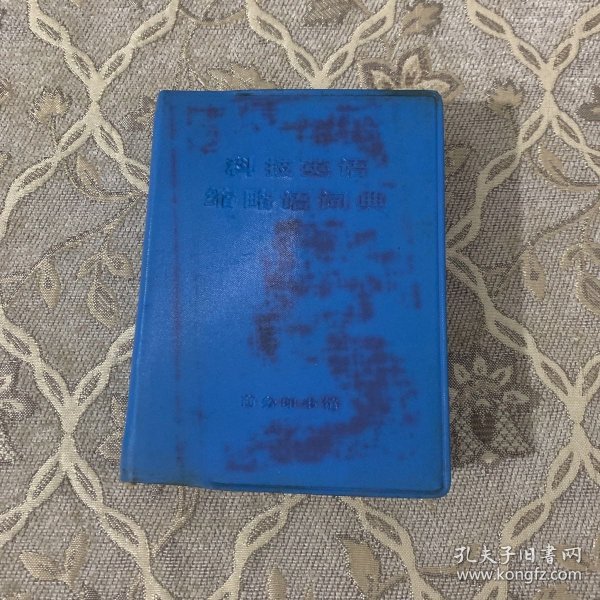 科技英语
缩略语词典
商务印书馆
孔夫子旧書网
www.kongfz.com